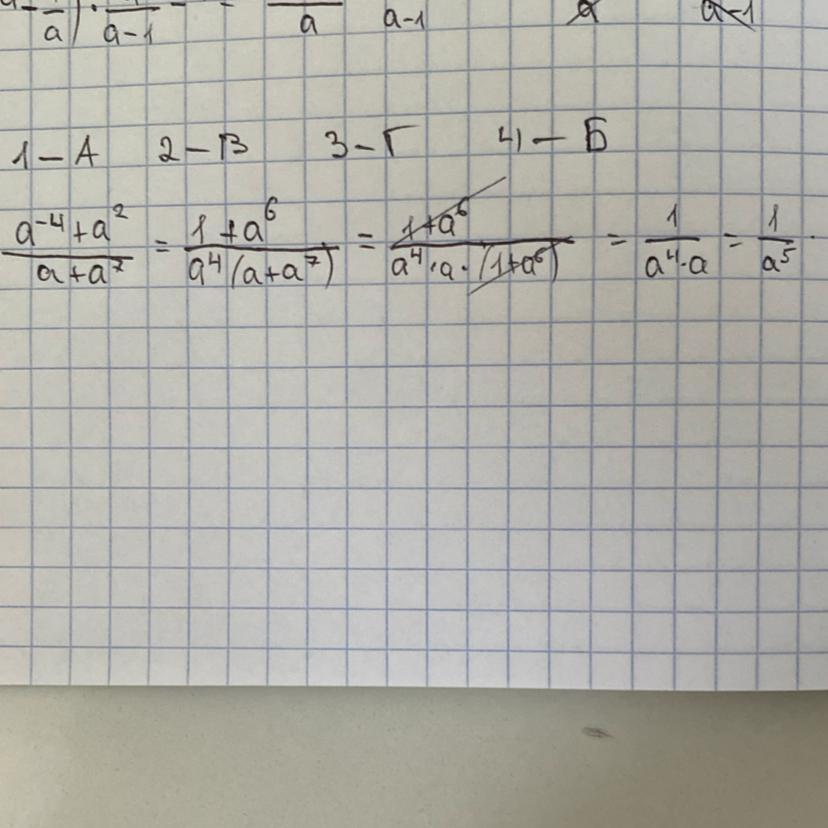 a) · a-1 = a a-1 a a-1
1 – А 2 – В 3 – Г 4 – Б
a⁻⁴+a²/a+a⁷ = 1+a⁶/a⁴(a+a⁷) = 1+a⁶/a⁴·a·(1+a⁶) = 1/a⁴·a = 1/a⁵.